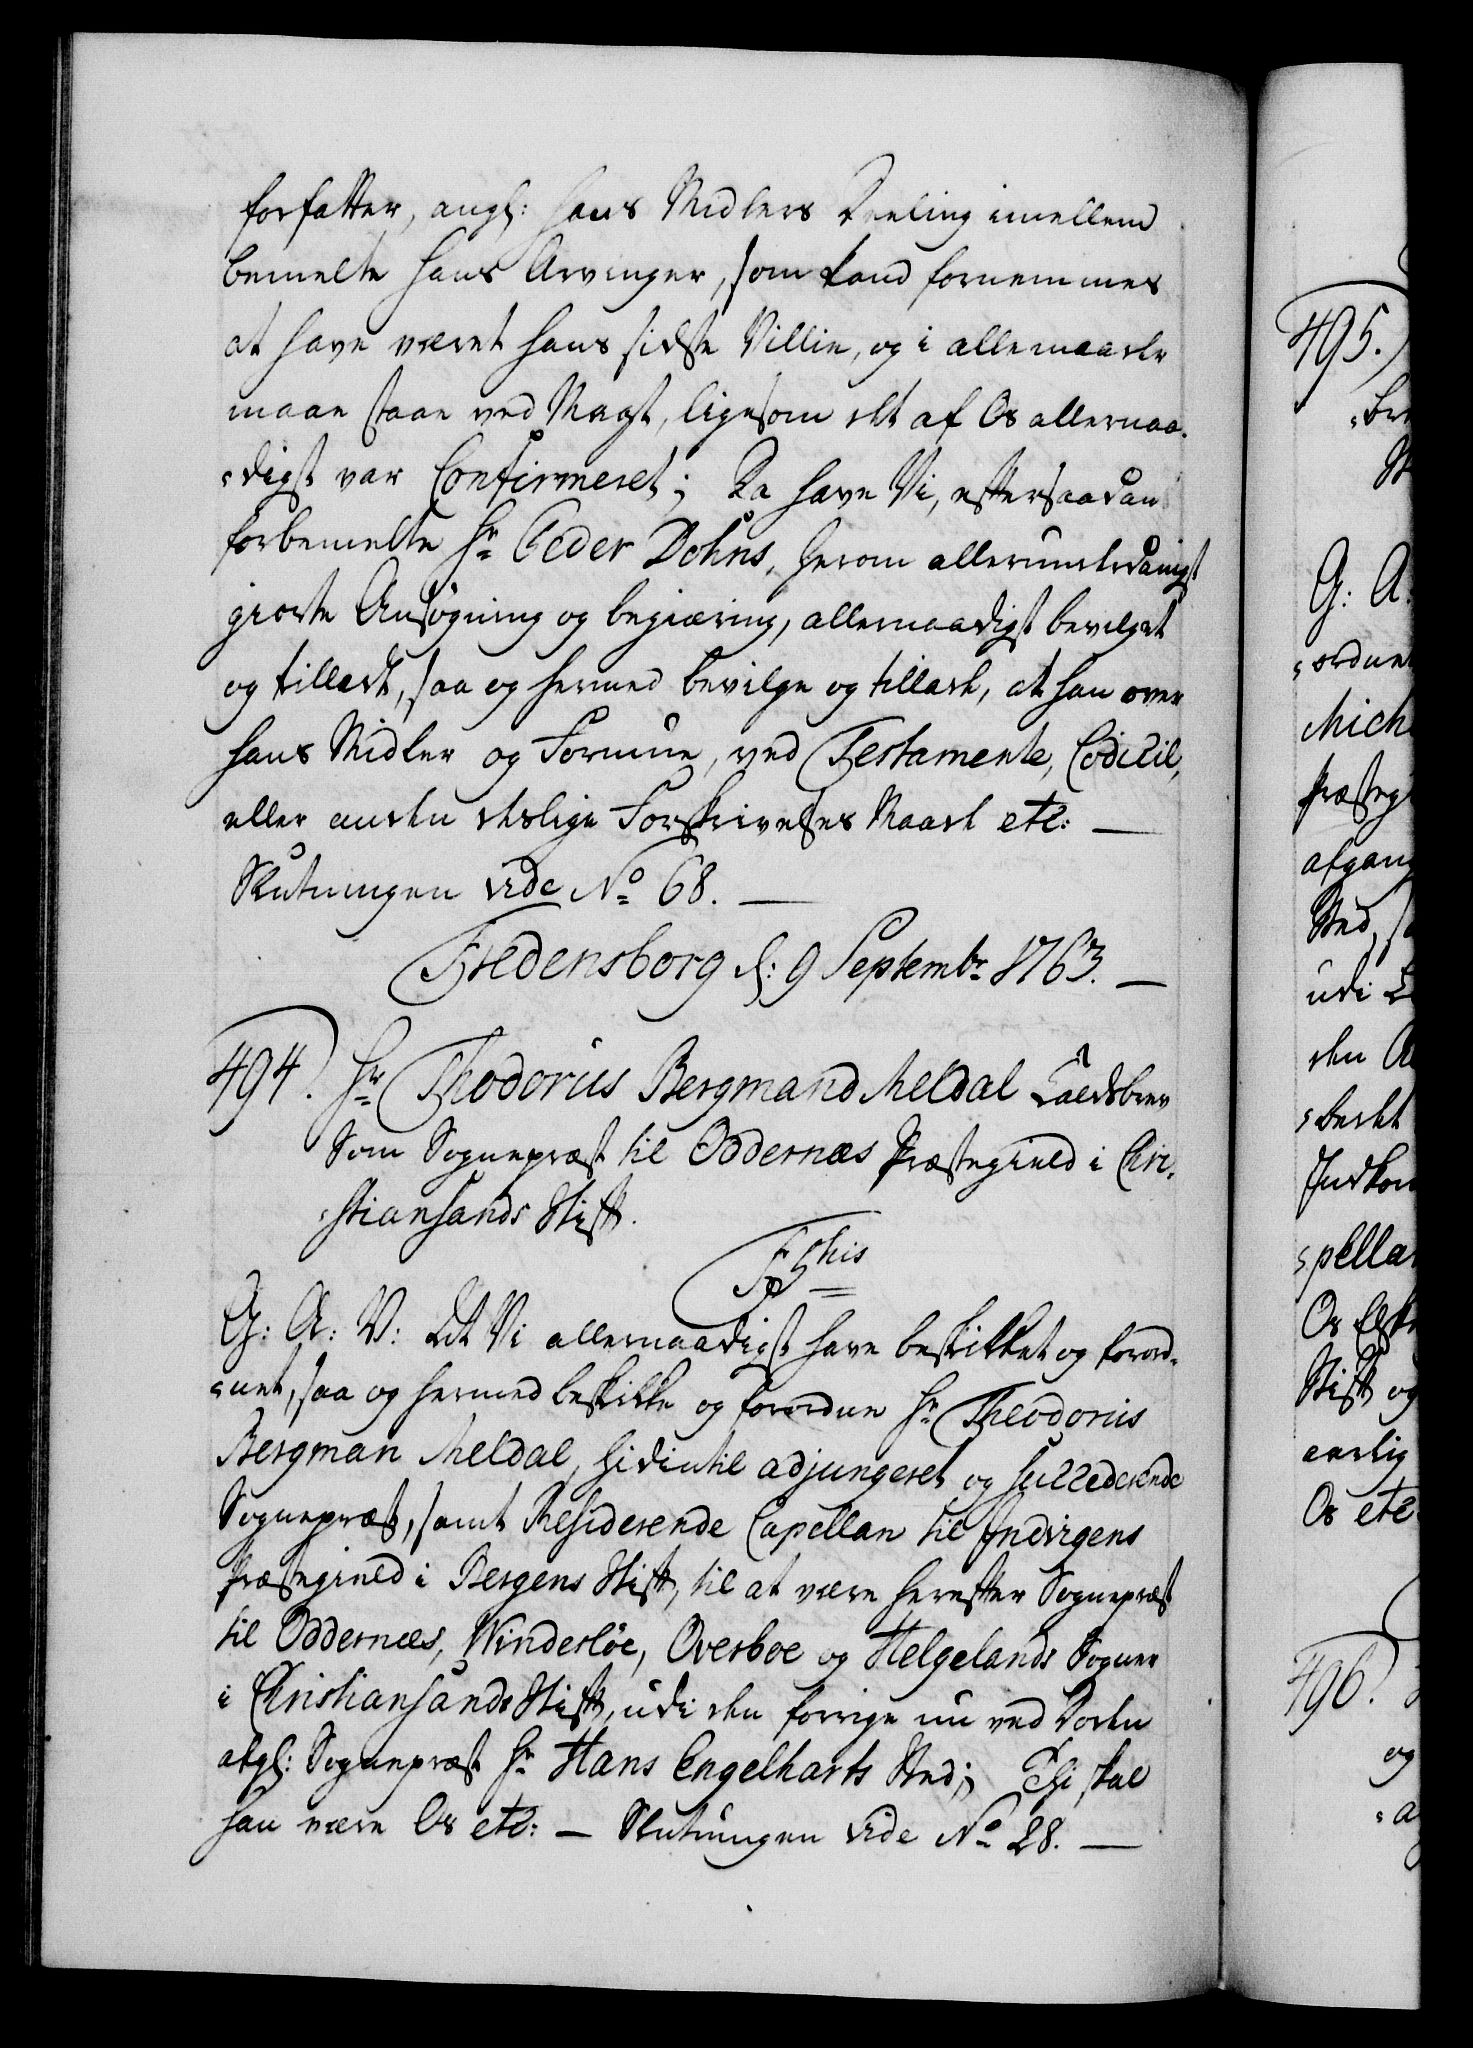 forfatter, angl: hans Midlers Deeling imellem
bemelte hans Arvinger, som kand fornemmes
at have været hans sidste Villie, og i alle maader
maae staae ved Magt, ligesom det af Os allernaa-
-digst var Confirmeret; Da have Vi, efter saadan
forbemelte Hr Peder Dohns, herom allerunderdanigst
giorte Ansøgning og begiæring, allernaadigst bevilget
og tilladt, saa og hermed bevilge og tillade, at han over
hans Midler og Formue, ved Testamente, Codicil,
eller anden deslige Forskrivelses Maade etc: —
Slutningen vide No 68. —
Fredensborg d: 9 Septembr 1763. —
494. Hr Thodorus Bergmand Meldal Kaldsbrev
Som Sognepræst til Oddernæs Præstegield i Chri-
-stiansands Stift.
F 5this
G: A: V: At Vi allernaadigst have beskikket og forord-
-net, saa og hermed beskikke og forordne Hr Theodorus
Bergman Meldal, hidindtil adjungeret og Succederende
Sognepræst, samt Residerende Capellan til Indvigens
Præstegield i Bergens Stift, til at være herefter Sognepræst
til Oddernæs, Winderløe, Overboe og Helgelands Sogner
i Christiansands Stift, udi den forrige nu ved Døden
afgl: Sognepræst Hr Hans Engelharts Sted; Thi skal
han være Os etc: — Slutningen vide No 28. —
495.
G: A:
-ordnet
Præsteg
afgang
Sted,
udi
den
Stift og
Os etc
496.
og